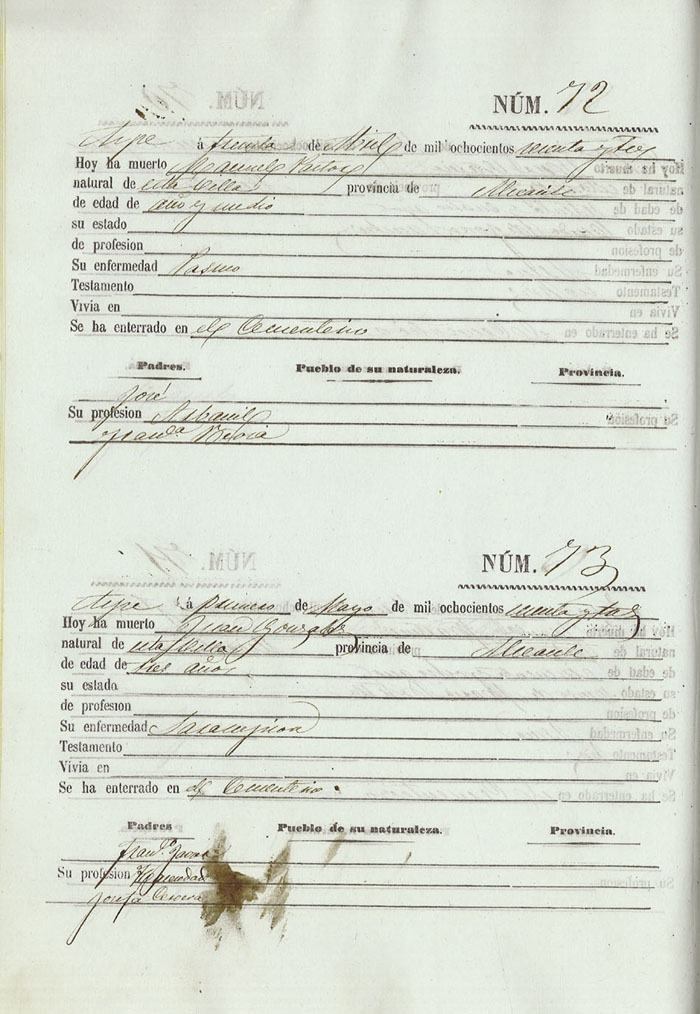 NÚM. 72
Aspe á treinta de Abril de mil ochocientos
Hoy ha muerto Manuel Pastor
natural de esta Villa provincia de Alicante
de edad de año y medio
su estado
de profesion
Su enfermedad Pasmo
Testamento
Vivia en
Se ha enterrado en el Cementerio
Padres. Pueblo de su naturaleza. Provincia.
José
Su profesion Albañil
Fran.ca
NÚM. 73
Aspe á primero de Mayo de mil ochocientos
Hoy ha muerto Juan Gonzalez
natural de esta Villa provincia de Alicante
de edad de tres años
su estado
de profesion
Su enfermedad Sarampion
Testamento
Vivia en
Se ha enterrado en el Cementerio
Padres Pueblo de su naturaleza. Provincia.
Fran.co
Su profesion
Josefa